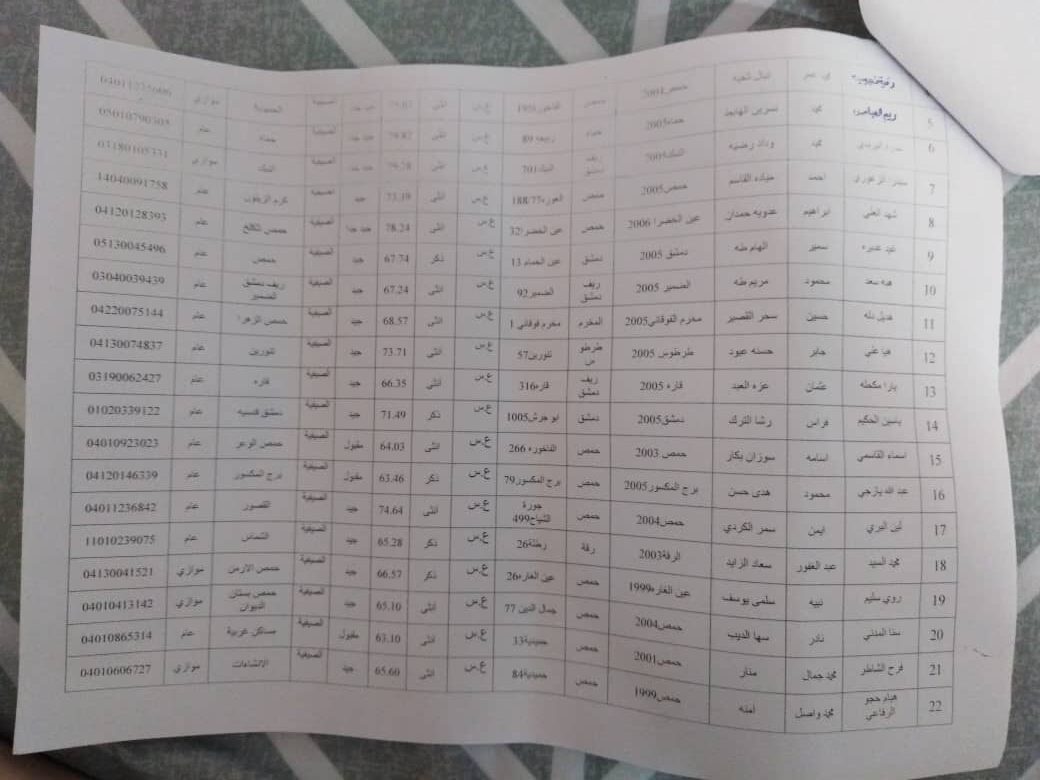 نبال حمص2001 حمص الفاخورة انثى الصيفية الحميدية موازي
5 محمد نسرين حماه2005 حماه ربيعه 89 ع.س انثى 79.82 جيد جدا الصيفية حماه عام 05010790305
6 محمد وداد رضيه النبك2005 ريف دمشق النبك201 ع.س انثى 79.28 جيد جدا الصيفية النبك موازي 03180105331
7 احمد ميادة القاسم حمص2005 حمص 188/77 ع.س انثى 73.19 جيد الصيفية كرم الزيتون عام 14040091758
8 شهد العلي ابراهيم عدويه حمدان عين الخضرا 2006 حمص عين الخضرا 32 ع.س انثى 78.24 جيد جدا الصيفية حمص تلكلخ عام 04120128393
9 سمير الهام طه دمشق 2005 دمشق 13 ع.س ذكر 67.74 جيد الصيفية حمص عام 05130045496
10 هبه سعد محمود مريم طه الضمير 2005 ريف دمشق الضمير92 ع.س انثى 67.24 جيد الصيفية ريف دمشق الضمير عام 03040039439
11 هديل دله حسين سحر القصير مخرم الفوقاني2005 المخرم مخرم فوقاني 1 ع.س انثى 68.57 جيد الصيفية حمص الزهرا عام 04220075144
12 هيا علي جابر حسنه عبود طرطوس 2005 طرطوس تنورين57 ع.س انثى 73.71 جيد الصيفية تنورين عام 04130074837
13 يارا مكحله عثمان عزه العبد قارة 2005 ريف دمشق قارة316 ع.س انثى 66.35 جيد الصيفية قاره عام 03190062427
14 ياسين الحكيم فراس رشا الترك دمشق2005 دمشق ابو جرش1005 ع.س ذكر 71.49 جيد الصيفية دمشق عام 01020339122
15 اسماء القاسمي اسامه سوزان بكار حمص 2003 حمص الفاخورة 266 ع.س انثى 64.03 مقبول الصيفية حمص الوعر عام 04010923023
16 عبد الله يازجي محمود هدى حسن برج المكسور2005 حمص برج المكسور79 ع.س ذكر 63.46 مقبول الصيفية برج المكسور عام 04120146339
17 لين البري ايمن سمر الكردي حمص2004 حمص جورة الشياح499 ع.س انثى 74.64 جيد الصيفية القصور عام 04011236842
18 محمد السيد عبد الغفور سعاد الزايد الرقة2003 رقة 26 ع.س ذكر 65.28 جيد الصيفية الشماس عام 11010239075
19 روي سليم نبيه سلمى يوسف عين الغارة1999 حمص عين الغارة26 ع.س ذكر 66.57 جيد الصيفية حمص الارمن موازي 04130041521
20 سنا المدني نادر سها الديب حمص2004 حمص جمال الدين 77 ع.س انثى 65.10 جيد الصيفية حمص بستان الديوان موازي 04010413142
21 فرح الشاطر محمد جمال منار حمص2001 حمص حميدية33 ع.س انثى 63.10 مقبول الصيفية مساكن عربية عام 04010865314
22 هيام حجو الرفاعي محمد واصل امنه حمص1999 حمص حميدية84 ع.س انثى 65.60 جيد الصيفية الانشاءات موازي 04010606727